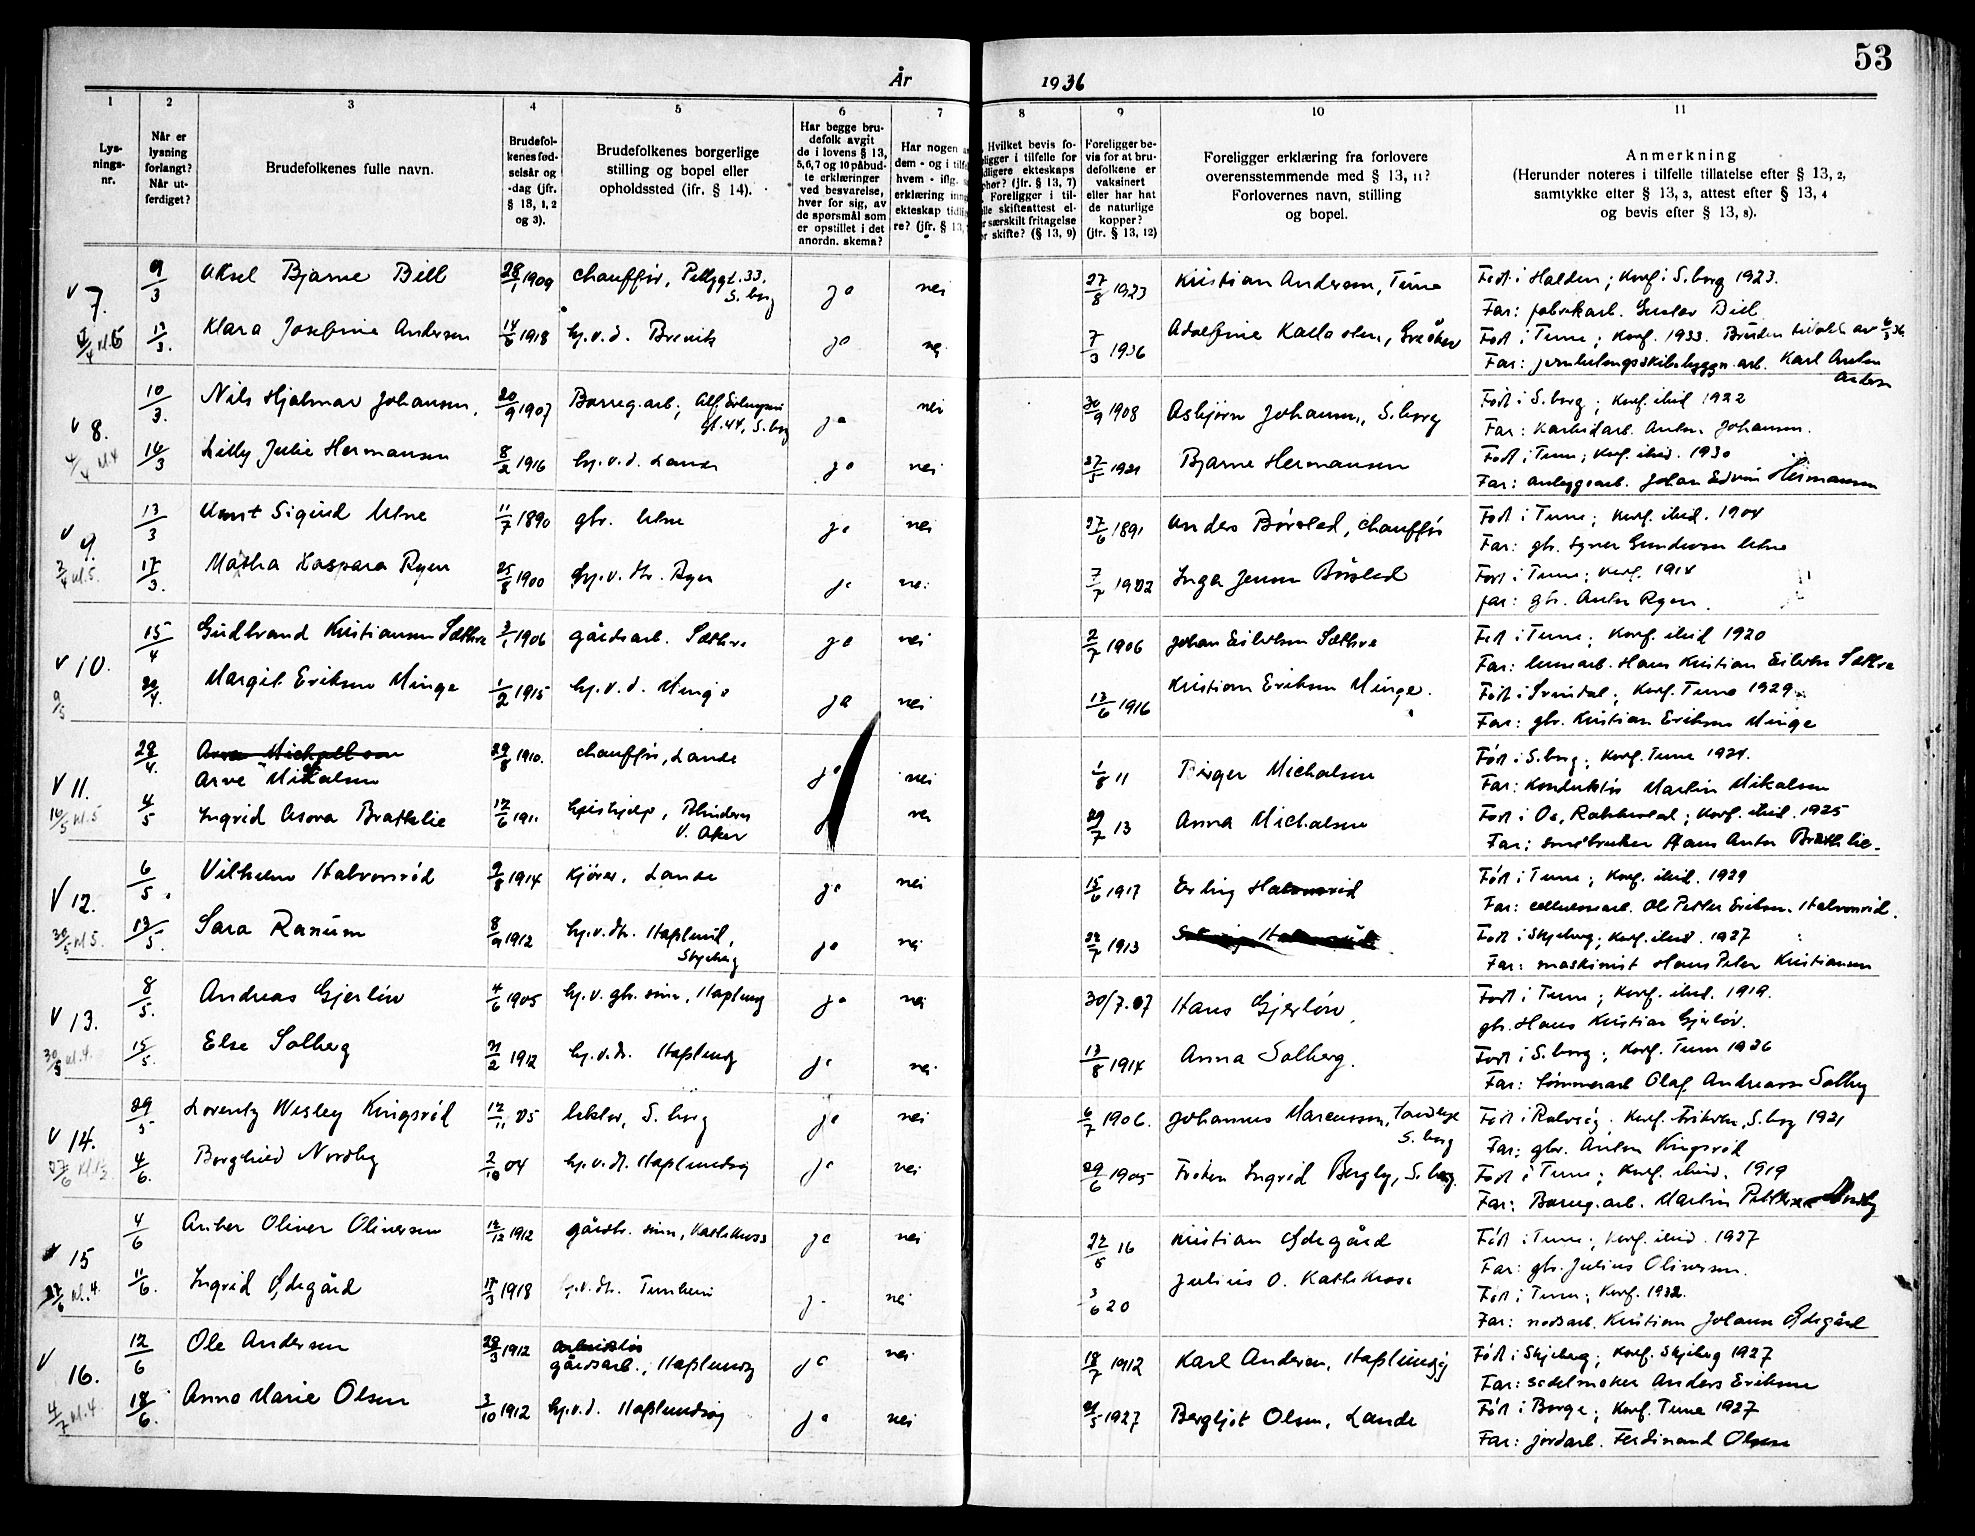 53
År 1936
1 2 3 4 5 6 7 8 9 10 11
Lys-
nings-
nr.
Når er
lysning
forlangt?
Når ut-
ferdiget?
Brudefolkenes fulle navn.
Brudefol-
kenes fød-
selsår og
-dag (jfr.
§ 13, 1, 2
og 3).
Brudefolkenes borgerlige
stilling og bopel eller
opholdssted (jfr. § 14).
Har begge bru-
defolk avgit
de i lovens § 13,
5,6,7 og 10 påbud-
te erklæringer
ved besvarelse,
hver for sig, av
de spørsmål som
er opstillet i det
anordn. skema?
Har nogen
dem - og i tilf
hvem - iflg.
erklæring inn
ekteskap tidli
re? (jfr. § 13,
Hvilket bevis fo-
religger i tilfelle for
tidligere ekteskaps
ophør? (jfr. § 13, 7)
Foreligger i til-
felle skifteattest el-
særskilt fritagelse
skifte? (§ 13, 9)
Foreligger be-
vis for at bru-
defolkene er
vaksinert
eller har hat
de naturlige
kopper?
(jfr. § 13, 12)
Foreligger erklæring fra forlovere
overensstemmende med § 13, 11?
Forlovernes navn, stilling
og bopel.
Anmerkning
(Herunder noteres i tilfelle tillatelse efter § 13, 2,
samtykke efter § 13, 3, attest efter § 13, 4
og bevis efter § 13, 8).
v 7. 9/3 Aksel Bjarne Biell 28/1 1909 chauffør, 33. ja nei 27/8 1923 Kristian Andersen, Tune Født i Halden; Konf. i S.borg 1923.
S. borg Far: fabrikarb. Gustav Biell
13/3. Klara Josefine Andersen 14/6 1918 hj.v.d. Brevik ja nei 7/3 1936 Adolfine Karlsen, Greåker Født i Tune; Konf. 1933.
Far: Karl Anton
Andersen
v 8. 10/3. Nils Hjalmar Johansen, 20/9 1907 Borreg.arb., nei 30/9 1908 Asbjørn Johansen, S.borg Født i S.borg; Konf. ibid 1922
gt.44, S.borg ja Far: Karbidarb. Anton Johansen.
4/4 kl.4 16/3 Lilly Julie Hermansen 8/2 1916 hj.v.d. Lande ja nei 27/5 1921 Bjarne Hermansen Født i Tune; Konf. ibid. 1930
Far: anleggsarb. Johan Edvin Hermansen
v 9. 13/3 Sigurd Utne 11/7 1890 gbr. Utne ja nei 27/6 1891 Anders Børsled, chauffør Født i Tune; Konf. ibid. 1904
Far: gbr. Gundersen Utne
kl.5. 17/3. Martha Kaspara Ryen 25/8 1900 hj.v. dtr. Ryen ja nei 7/7 1902 Inga Jensen Børsled Født i Tune; Konf. 1914
far: gbr. Anton Ryen.
v 10. 15/4 Gudbrand Kristiansen Sæthre 3/1 1906 gårdsarb. Sæthre ja nei 2/7 1906 Johan Eilertsen Sæthre Født i Tune; Konf. ibid 1920
Far: Hans Kristian Eilertsen Sæthre
9/5 20/4. Margit Eriksen Minge 1/2 1915 hj.v.d. Minge ja nei 13/6 1916 Kristian Eriksen Minge. Født i Svindal; Konf. Tune 1929.
Far: gbr. Kristian Eriksen Minge
v 11. 28/4. Arve Michaelsen
Arve Mikalsen 29/8 1910. chauffør, Lande ja nei 1/8 11 Birger Michalsen Født i S.borg; Konf. Tune 1924.
Far: Konduktør Martin Mikalsen
16/5 kl.5 4/5 Ingrid Asora Brathlie 12/6 1911 hushjelp, Blindern nei 29/7 13 Anna Michalsen Født i Os, Rakkestad; Konf. ibid. 1925
V. Aker Far: småbruker Hans Anton Brathlie.
V 12. 6/5. Vilhelm Halvorsrød 9/8 1914 Kjører, Lande ja nei 15/6 1917 Erling Halvorsrød Født i Tune; Konf. ibid. 1929
Far: cellulosearb. Ole Petter Eriksen Halvorsrød.
30/5 kl.5. 13/5. Sara Ranum 8/9 1912 hj.v.dtr. Hafslund, ja nei 22/7 1913 Født i Skjeberg; Konf. ibid. 1927
Skjeberg Far: maskinist Hans Peter Kristiansen
v 13. 8/5. Andreas Gjerløv 4/6 1905 hj.v. gbr. sønn, Hafslund ja nei 30/7.07 Hans Gjerløv, Født i Tune; Konf. ibid. 1919.
gbr. Hans Kristian Gjerløv.
30/5 kl.4. 15/5. Else Solberg 1912 hj.v.dtr. Hafslund ja nei 13/8 1914 Anna Solberg. Født i S.borg; Konf. Tune 1926
Far: tømmerarb Olaf Andreassen Solberg
v 14. 29/5 Lorentz Wesley Kingsrød 12/11 05 lektor, S.borg ja nei 6/7 1906. Johannes Marcussen, Tandlege
S. borg Født i Rolvsøy. Konf. S.borg 1921
Far: gbr. Anton Kingsrød
27/6 4/6. Borghild Nordby 2/10 04 hj.v.dtr. Hafslundsøy ja nei 29/6 1905 Frøken Ingrid Bergby, S.borg. Født i Tune; Konf. ibid. 1919
Far: Borreg.arb. Martin Nordby
v 15 4/6 Anker Oliver Oliversen 12/12 1912 gårdbr. sønn, Kathikross ja nei 22/5 16 Kristian Ødegård Født i Tune; Konf. ibid. 1927
Far: gbr. Julius Oliversen.
27/6 kl.4. 11/6. Ingrid Ødegård 1918 hj.v.dtr. Tunheim ja nei 3/6 20 Julius O. Kathikross Født i Tune; Konf. 1932.
Far: nodsarb. Kristian Johansen Ødegård
v 16. 12/6 Ole Andersen 28/3 1912 gårdsarb., Hafslundsøy ja nei 18/7 1912 Karl Andersen, Hafslundsøy Født i Skjeberg; Konf. Skjeberg 1927
Far: sadelmaker Anders Eriksen
4/7 kl.4 18/6. Anna Marie Olsen 3/10 1912 hj.v.d. Hafslundsøy ja nei 21/5 1927 Bergljot Olsen, Lande Født i Borge; Konf. Tune 1927
Far: jordarb. Ferdinand Olsen